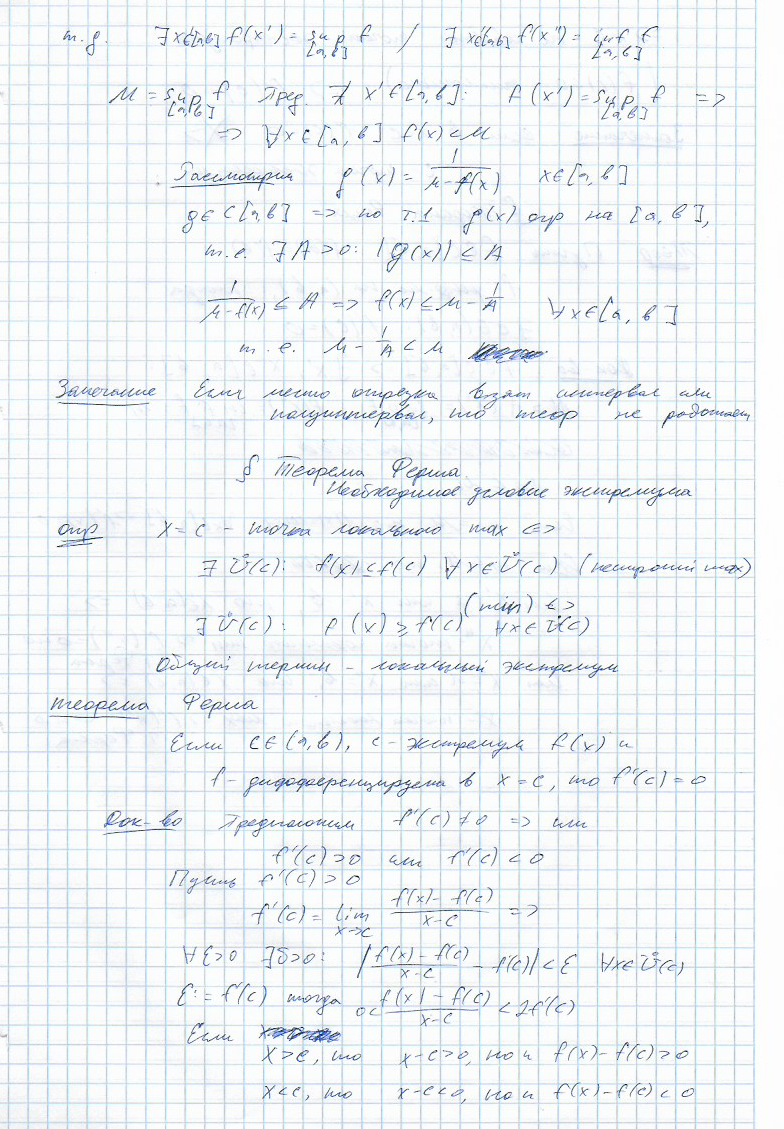 т.д. ∃ x'∈[a,b] f(x') = sup f / ∃ x''∈[a,b] f(x'') = inf f
[a,b] [a,b]
M = sup f Пред. ∄ x'∈[a,b]: f(x') = sup f =>
[a,b] [a,b]
=> ∀x∈[a,b] f(x)<M
Рассмотрим g(x) = 1/(M-f(x)) x∈[a,b]
g∈C[a,b] => по т.1 g(x) огр на [a,b],
т.е. ∃A>0: |g(x)| ≤ A
1/(M-f(x)) ≤ A => f(x) ≤ M - 1/A ∀x∈[a,b]
т.е. M - 1/A < M
Замечание Если место отрезка взят интервал или
полуинтервал, то теор не работает
§ Теорема Ферма.
Необходимое условие экстремума
опр x=c – точка локального max <=>
∃ Ů(c): f(x) ≤ f(c) ∀x∈Ů(c) (нестрогий max)
(min) <=>
∃ Ů(c): f(x) ≥ f(c) ∀x∈Ů(c)
Общий термин – локальный экстремум
теорема Ферма
Если c∈(a,b), c – экстремум f(x) и
f – дифференцируема в x=c, то f'(c)=0
Док-во Предположим f'(c)≠0 => или
f'(c)>0 или f'(c)<0
Пусть f'(c)>0
f'(c) = lim (f(x)-f(c))/(x-c) =>
x→c
∀ε>0 ∃δ>0: |(f(x)-f(c))/(x-c) - f'(c)| < ε ∀x∈Ů(c)
ε:=f'(c) тогда 0< (f(x)-f(c))/(x-c) < 2f'(c)
Если
x>c, то x-c>0, но и f(x)-f(c)>0
x<c, то x-c<0, но и f(x)-f(c)<0